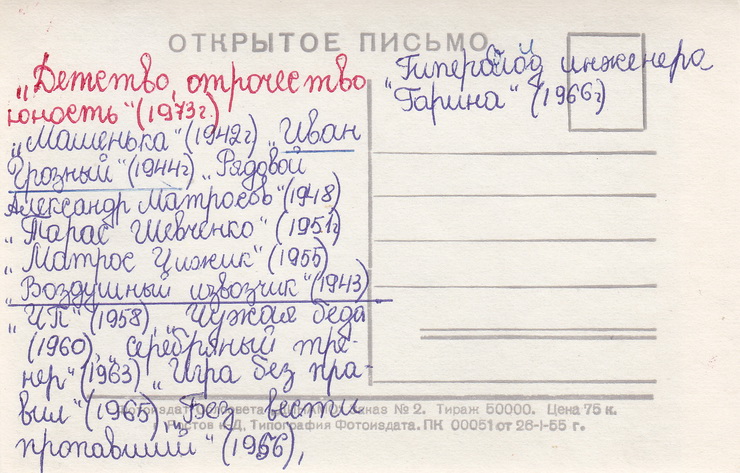 ОТКРЫТОЕ ПИСЬМО
„Детство, отрочество
юность" (1973г.)
„Машенька" (1942г) „Иван
Грозный" (1944г) „Рядовой
Александр Матросов" (1948)
„Тарас Шевченко" (1951г)
„Матрос Чижик" (1955)
„Воздушный извозчик" (1943)
„ЧП" (1958), „Чужая беда
(1960), „Серебряный тре-
нер" (1963) „Игра без пра-
вил" (1965), „Без вести
пропавший" (1956),
„Гиперболоид инженера
Гарина" (1966г)
Заказ № 2. Тираж 50000. Цена 75 к.
Ростов н-Д, Типография Фотоиздата. ПК 00051 от 26-I-55 г.